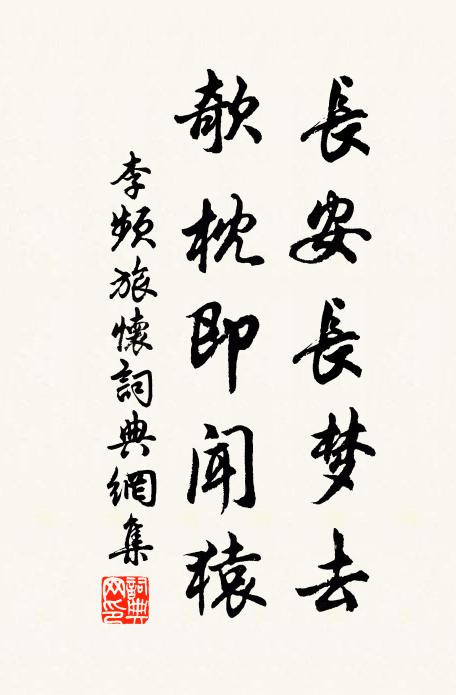 長安長梦去
欹枕即闻猿
李頻旅懷詞典網集
詞典网印